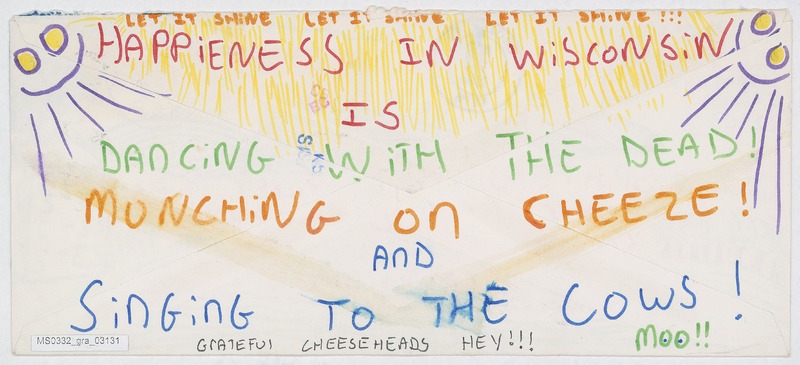 LET IT SHINE LET IT SHINE LET IT SHINE!!!
HAPPiENESS IN WiSCONSiN
IS
DANCiNG WiTH THE DEAD!
MUNCHiNG on CHEEZE!
AnD
SinGinG To THE CoWS!
GRATEFUl CHEESEHEADS HEY!!!
Moo!!
MS0332_gra_03131